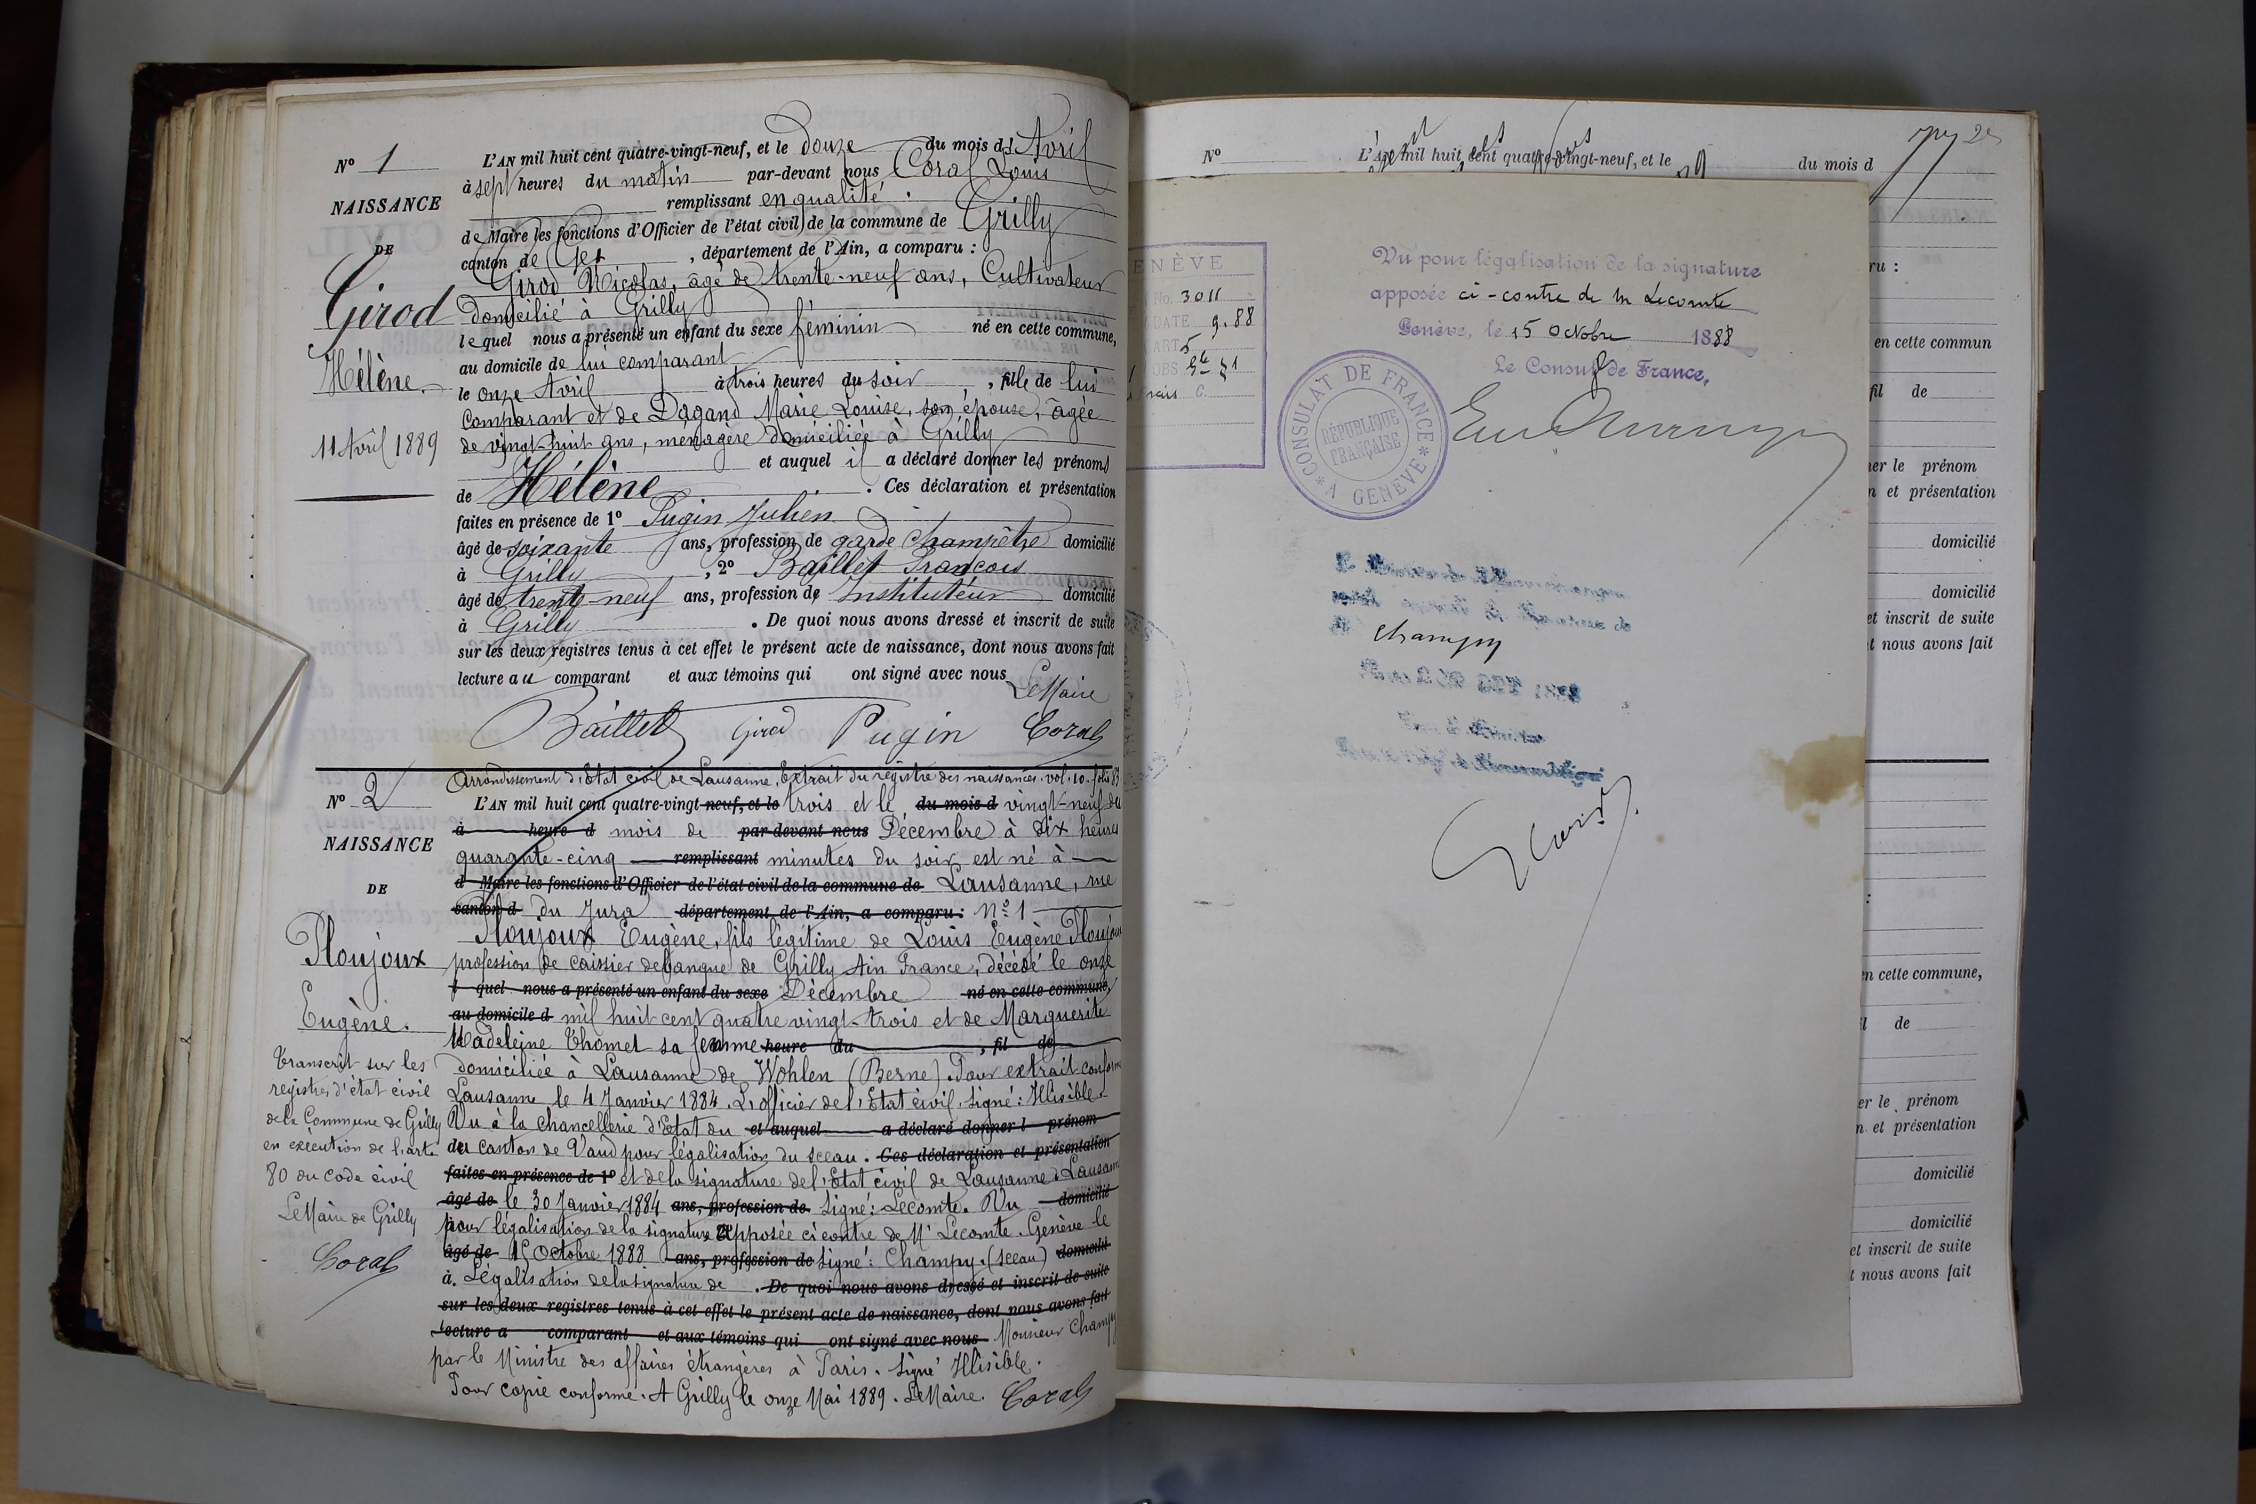 N° 1
NAISSANCE
DE
Girod
Hélène.
11 Avril 1889
L'AN mil huit cent quatre-vingt-neuf, et le douze du mois d'Avril
à sept heures du matin par-devant nous Coral Louis
remplissant en qualité
de Maire les fonctions d'Officier de l'état civil de la commune de Grilly
canton de Gex, département de l'Ain, a comparu :
Girod Nicolas, âgé de trente-neuf ans, Cultivateur
domicilié à Grilly
lequel nous a présenté un enfant du sexe féminin né en cette commune,
au domicile de lui comparant
le onze Avril à trois heures du soir, fille de lui
Comparant et de Dagand Marie Louise, son épouse, âgée
de vingt-huit ans, ménagère domiciliée à Grilly
et auquel il a déclaré donner les prénoms
de Hélène. Ces déclaration et présentation
faites en présence de 1° Pugin Julien
âgé de soixante ans, profession de garde champêtre domicilié
à Grilly, 2° Baillet François
âgé de trente-neuf ans, profession de Instituteur domicilié
à Grilly. De quoi nous avons dressé et inscrit de suite
sur les deux registres tenus à cet effet le présent acte de naissance, dont nous avons fait
lecture au comparant et aux témoins qui ont signé avec nous
Le Maire
Baillet Girod Pugin Coral
N° 2
NAISSANCE
DE
Ploujoux
Eugène.
Transcrit sur les
registres d'état civil
de la Commune de Grilly
en exécution de l'arte
80 du Code civil
Le Maire de Grilly
Coral
Arrondissement d'Etat civil de Lausanne. Extrait du registre des naissances. vol. 10. folio 83
L'AN mil huit cent quatre-vingt-neuf, et le trois et le du mois d vingt-neuf du
à heure d mois de par-devant nous Décembre à dix heures
quarante-cinq remplissant minutes du soir est né à
d Maire les fonctions d'Officier de l'état civil de la commune de Lausanne, rue
canton d du Jura département de l'Ain, a comparu : N° 1
Ploujoux Eugène, fils légitime de Louis Eugène Ploujoux
profession de caissier de banque de Grilly Ain France, décédé le onze
l quel nous a présenté un enfant du sexe Décembre né en cette commune,
au domicile d mil huit cent quatre vingt-trois et de Marguerite
Madeleine Thomet sa femme heure du , fil de
domiciliée à Lausanne de Wohlen (Berne). Pour extrait conforme
Lausanne le 4 Janvier 1884. L'officier de l'Etat civil. Signé : Illisible.
Vu à la chancellerie d'Etat du et auquel a déclaré donner l prénom
du canton de Vaud pour légalisation du sceau. Ces déclaration et présentation
faites en présence de 1° et de la signature de l'Etat civil de Lausanne. Lausanne
âgé de le 30 Janvier 1884 ans, profession de Signé : Lecomte. Vu domicilié
pour légalisation de la signature apposée ci contre de Mr Lecomte. Genève le
âgé de 15 Octobre 1888 ans, profession de Signé : Champy. (sceau) domicilié
à. Légalisation de la signature de . De quoi nous avons dressé et inscrit de suite
sur les deux registres tenus à cet effet le présent acte de naissance, dont nous avons fait
lecture a comparant et aux témoins qui ont signé avec nous Monsieur Champy
par le Ministre des affaires étrangères à Paris. Signé Illisible.
Pour copie conforme. A Grilly le onze Mai 1889. Le Maire. Coral
N° L'AN mil huit cent quatre-vingt-neuf, et le du mois d
ENÈVE
No. 3011
DATE 9.88
ART 5
OBS
Vu pour légalisation de la signature
apposée ci-contre de M Lecomte
Genève, le 15 Octobre 1888
Le Consul de France,
CONSULAT DE FRANCE
A GENÈVE
RÉPUBLIQUE
FRANÇAISE
Champy
ru :
en cette commun
fil de
er le prénom
n et présentation
domicilié
domicilié
et inscrit de suite
t nous avons fait
:
en cette commune,
l de
er le prénom
n et présentation
domicilié
domicilié
et inscrit de suite
t nous avons fait